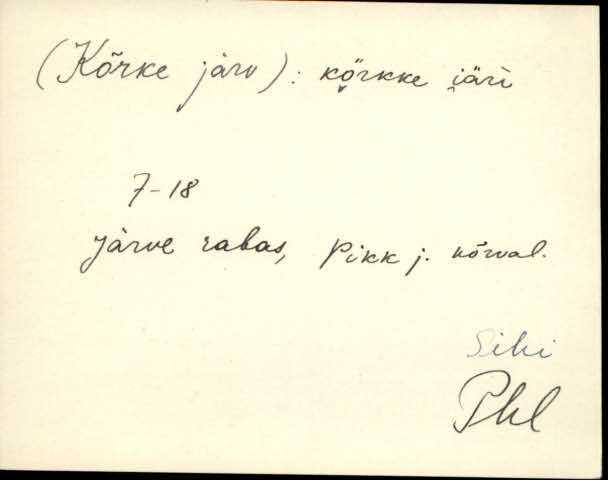 (Kõrke järv): kö̬rkke i̯äri̬
7-18
järve rabas, Pikk j. kõrval.
Sihi
Phl